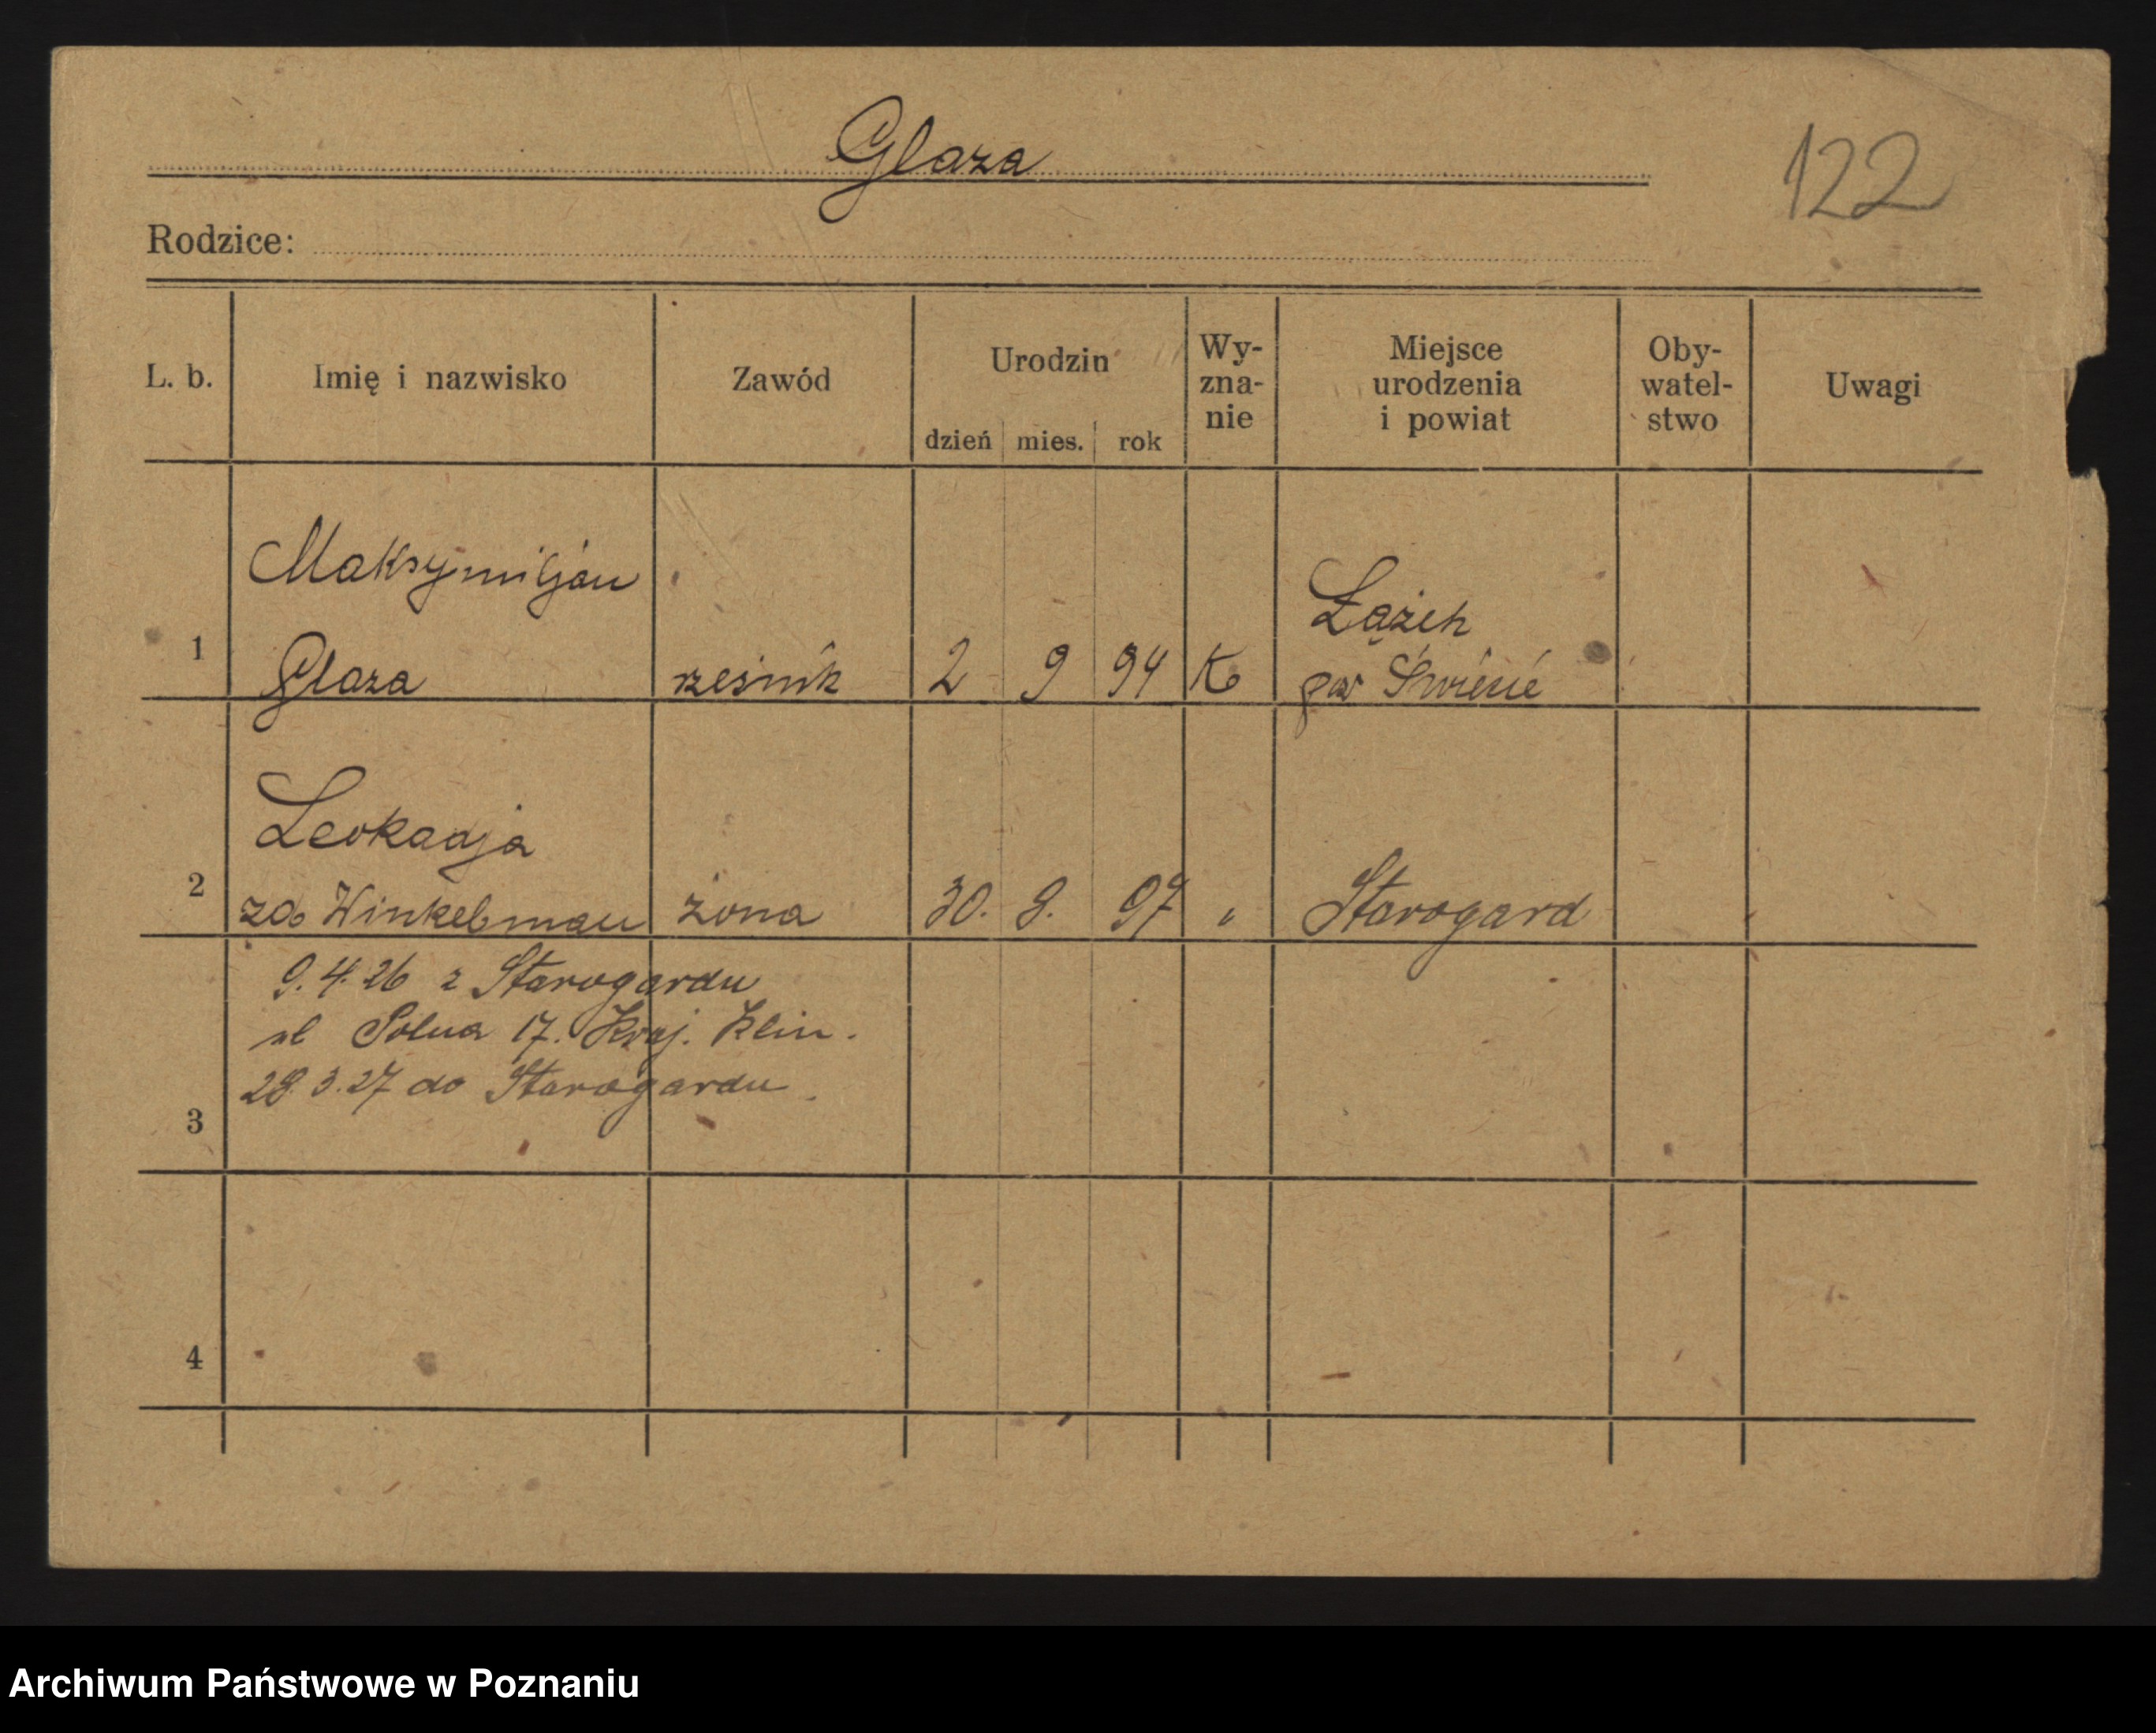 Glaza
122
Rodzice:
L. b.
Imię i nazwisko
Zawód
Urodzin
dzień mies. rok
Wy-
zna-
nie
Miejsce
urodzenia
i powiat
Oby-
watel-
stwo
Uwagi
Maksymiljan
1 Glaza rzeźnik 2 9 94 K
Łążek
pow Świecie
Leokadja
2 zd Winkelman żona 30. 9. 97 " Starogard
9.4.26 z Starogardu
ul Polna 17. Kraj. Klin.
28.3.27 do Starogardu.
3
4
Archiwum Państwowe w Poznaniu